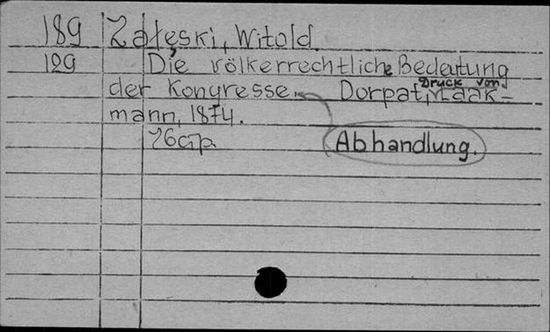 189 Załęski, Witold
129 Die völkerrechtliche Bedeutung
der Kongresse. Dorpat, Druck von Laak-
mann, 1874.
76 стр.
Abhandlung.